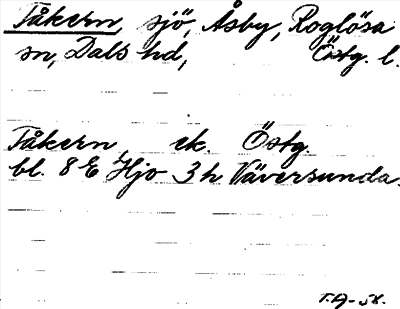 Tåkern, sjö, Åsby, Roglösa
sn, Dals hd, Östg. l.
Tåkern ek. Östg.
bl. 8 E Hjo 3 h Väversunda.
T.A-58.